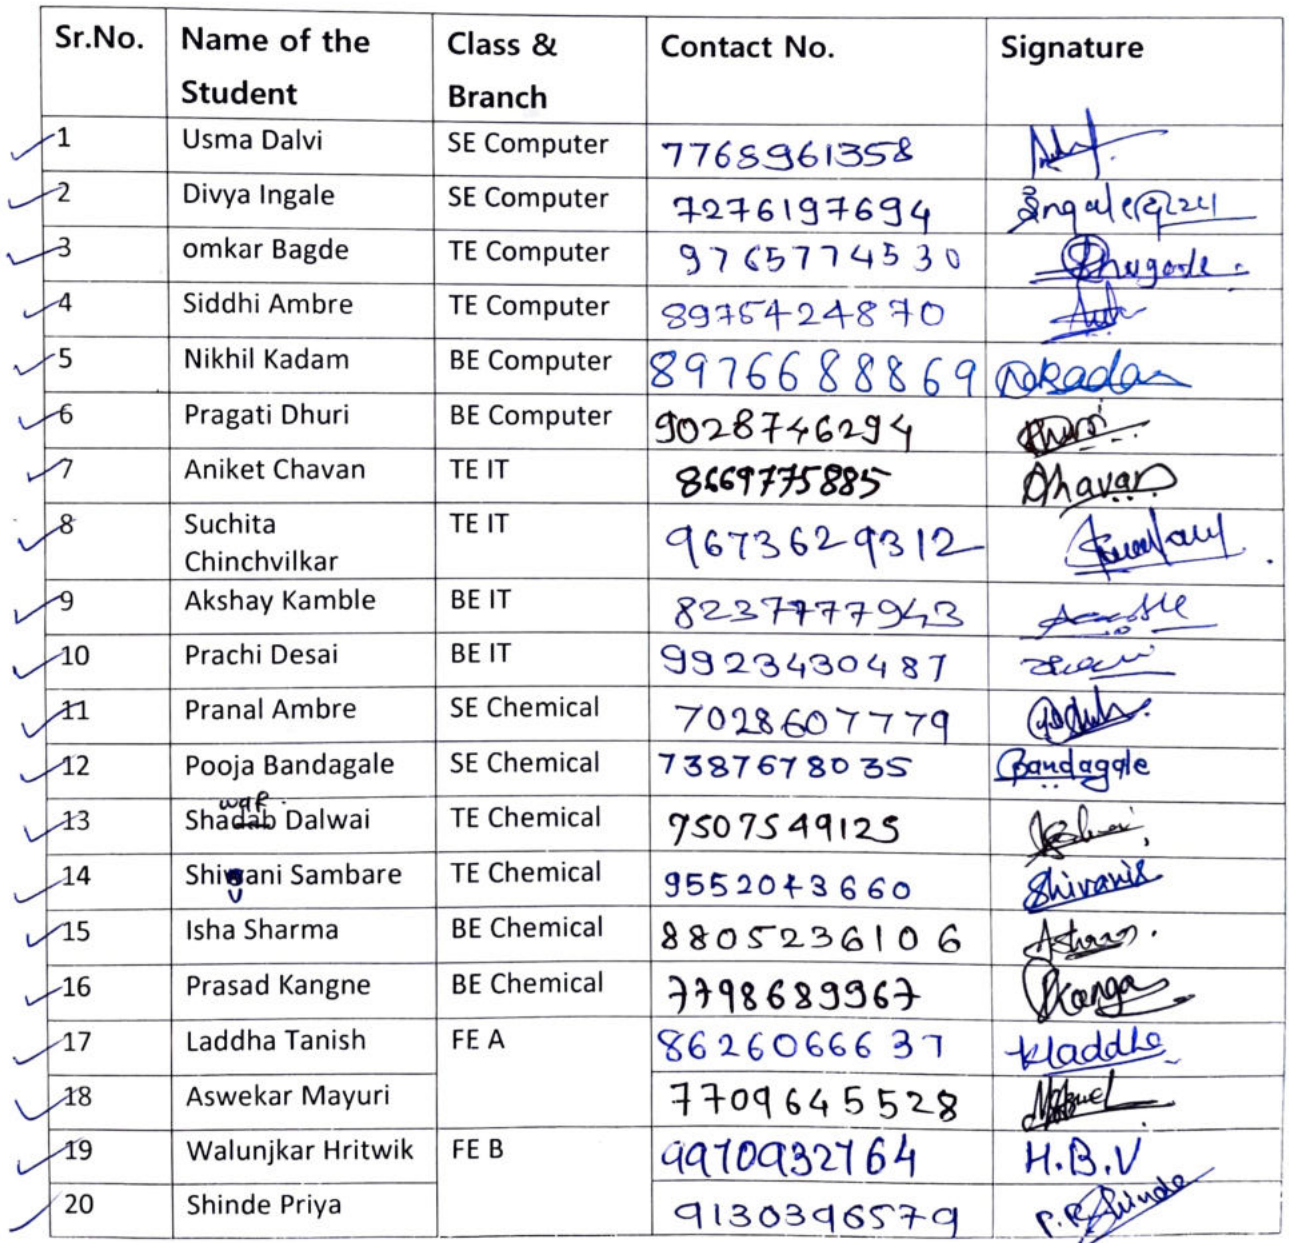 Sr.No. Name of the Student Class & Branch Contact No. Signature
1 Usma Dalvi SE Computer 7768961358
2 Divya Ingale SE Computer 7276197694
3 omkar Bagde TE Computer 9765774530
4 Siddhi Ambre TE Computer 8975424870
5 Nikhil Kadam BE Computer 8976688869 Nkadam
6 Pragati Dhuri BE Computer 9028746294 Dhuri
7 Aniket Chavan TE IT 8669775885 Chavan
8 Suchita Chinchvilkar TE IT 9673629312
9 Akshay Kamble BE IT 8237777943
10 Prachi Desai BE IT 9923430487
11 Pranal Ambre SE Chemical 7028607779
12 Pooja Bandagale SE Chemical 7387678035 Bandagale
war
13 Shadab Dalwai TE Chemical 7507549125
14 Shivani Sambare TE Chemical 9552043660 Shivanis
15 Isha Sharma BE Chemical 8805236106
16 Prasad Kangne BE Chemical 7798689967
17 Laddha Tanish FE A 8626066637 Kladdha
18 Aswekar Mayuri 7709645528
19 Walunjkar Hritwik FE B 9970932764 H.B.V
20 Shinde Priya 9130396579 P.R.Shinde